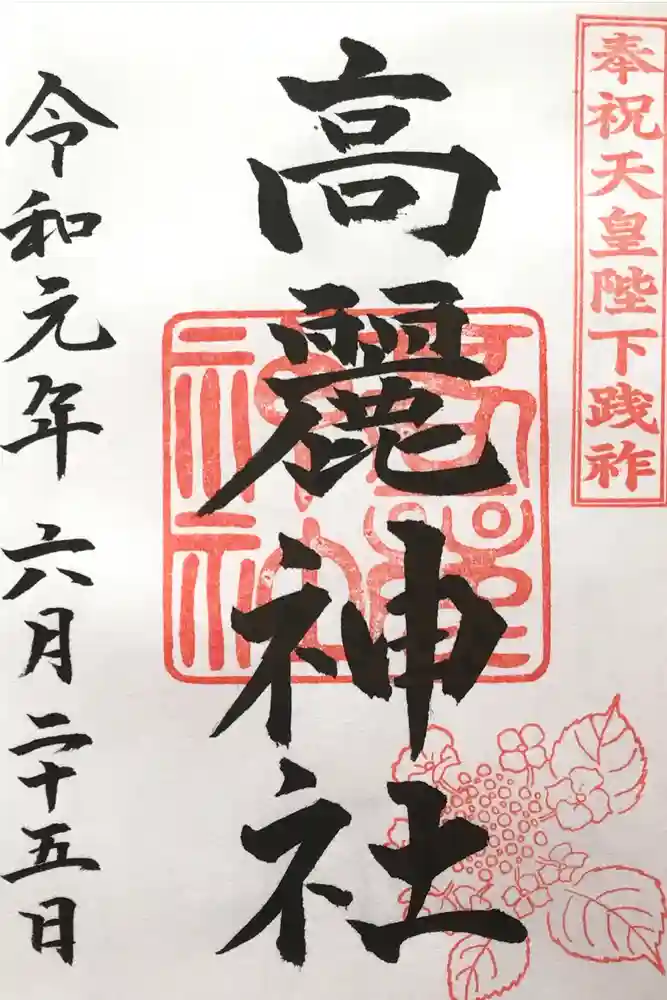 奉祝天皇陛下践祚
高麗神社
令和元年 六月 二十五日